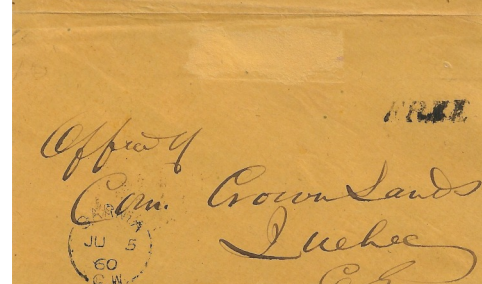 FREE
Office of
Com. Crown Lands
Quebec
C.E.
SARNIA
JU 5
60
C.W.